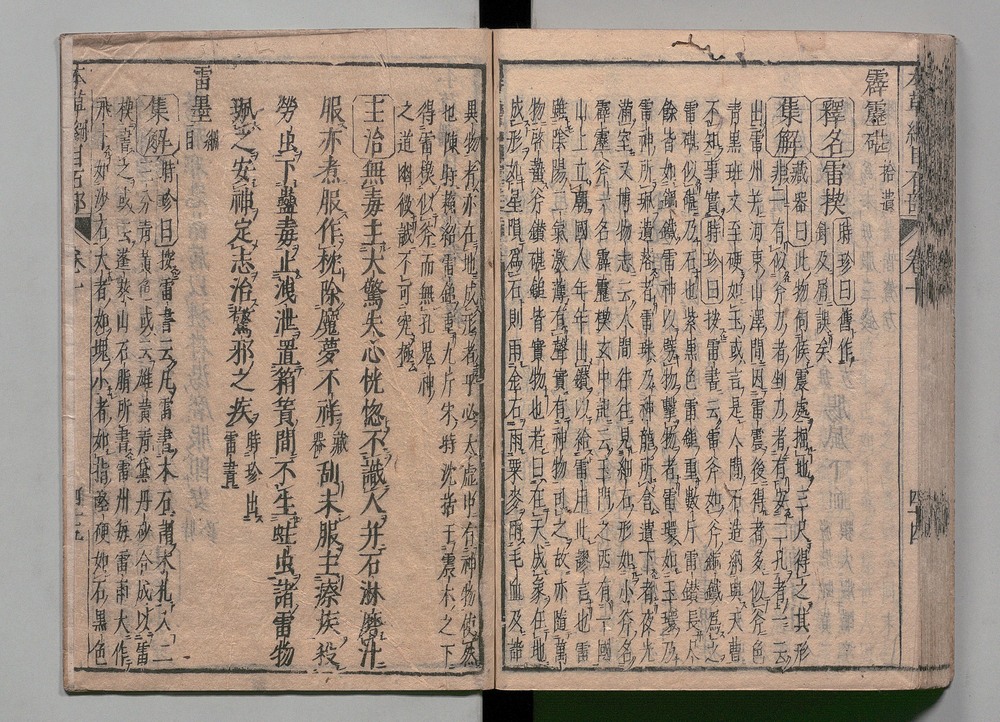 霹靂碪 拾遺
釋名 雷楔 時珍曰舊作針及屑誤矣
集解 藏器曰此物伺候震處掘地三尺得之其形
非一有似斧刀者剉刀者有安二孔者一云
出雷州并河東山澤間因雷震後得者多似斧色
青黑斑文至硬如玉或言是人間石造納與天曹
不知事實 時珍曰按雷書云雷斧如斧銅鐵爲之
雷碪似碪乃石也紫黑色雷鎚重數斤雷鑽長尺
餘皆如鋼鐵雷神以劈物擊物者雷環如玉環乃
雷神所珮遺落者雷珠乃神龍所含遺下者夜光
滿室又博物志云人間往往見細石形如小斧名
霹靂斧一名霹靂楔玄中記云玉門之西有一國
山上立廟國人年年出鑽以給雷用此謬言也雷
雖陰陽二氣激薄有聲實有神物司之故亦隨萬
物啓蟄斧鑽碪鎚皆實物也若曰在天成象在地
成形如星隕爲石則雨金石雨粟麥雨毛血及諸
異物者亦在地成形者乎必太虛中有神物使然
也陳時蘇紹雷鎚重九斤宋時沈括于震木之下
得雷楔似斧而無孔鬼神
之道幽微誠不可究極
主治 無毒主大驚失心恍惚不識人并石淋磨汁
服亦煮服作枕除魔夢不祥 藏器 刮末服主瘵疾殺
勞虫下蠱毒止洩泄置箱簣間不生蛀虫諸雷物
珮之安神定志治驚邪之疾 時珍出雷書
雷墨 綱目
集解 時珍曰按雷書云凡雷書木石謂木札入二
三分青黃色或云雄黃青黛丹砂合成以雷
楔書之或云蓬萊山石脂所書雷州每雷雨大作
飛下如沙石大者如塊小者如指堅硬如石黑色